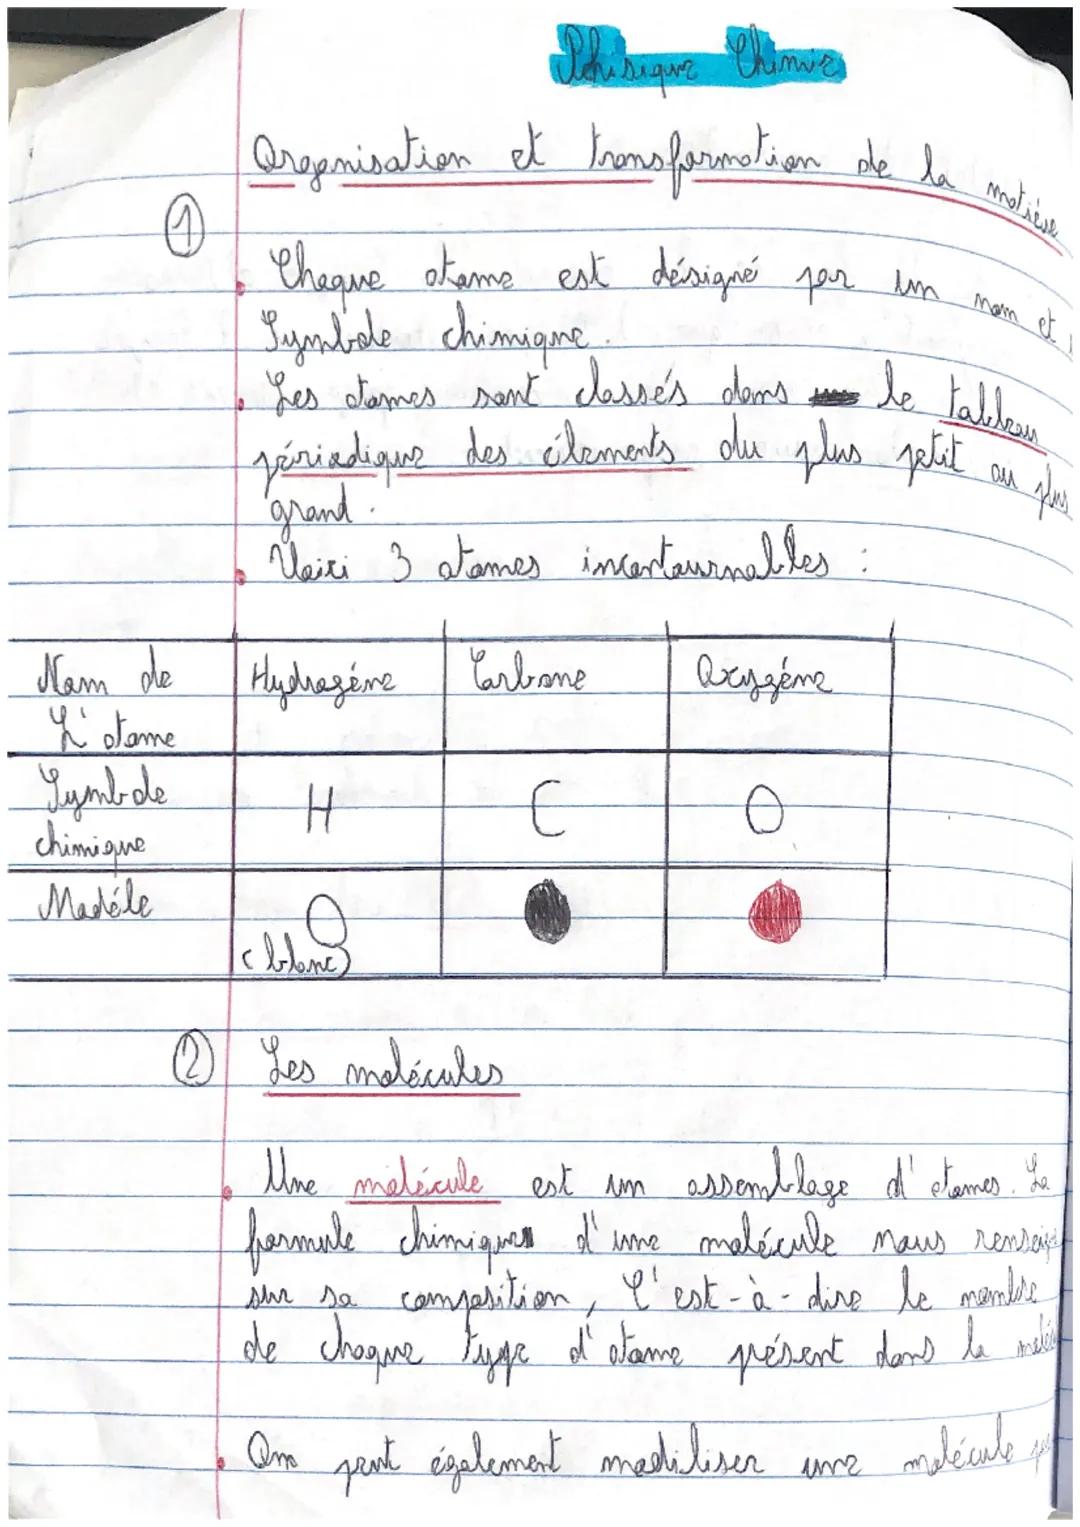 Phisique Chimie
Organisation et transformation de la matière
①
Chaque atome est désigné par un nom et
Symbole chimique.
Les atomes sont classés dans le tableau
périodique des éléments du plus petit au plus
grand.
Voici 3 atomes incontournables :
Nom de L'atome | Hydrogéne | Carbone | Oxygéne
Symbole chimique | H | C | O
Modéle | (blanc)
② Les molécules
Une molécule est un assemblage d'atomes. La
formule chimique d'une molécule nous
sur sa composition, C'est-à-dire le nombre
de chaque type d'atome présent dans la
On peut également modiliser une molécule